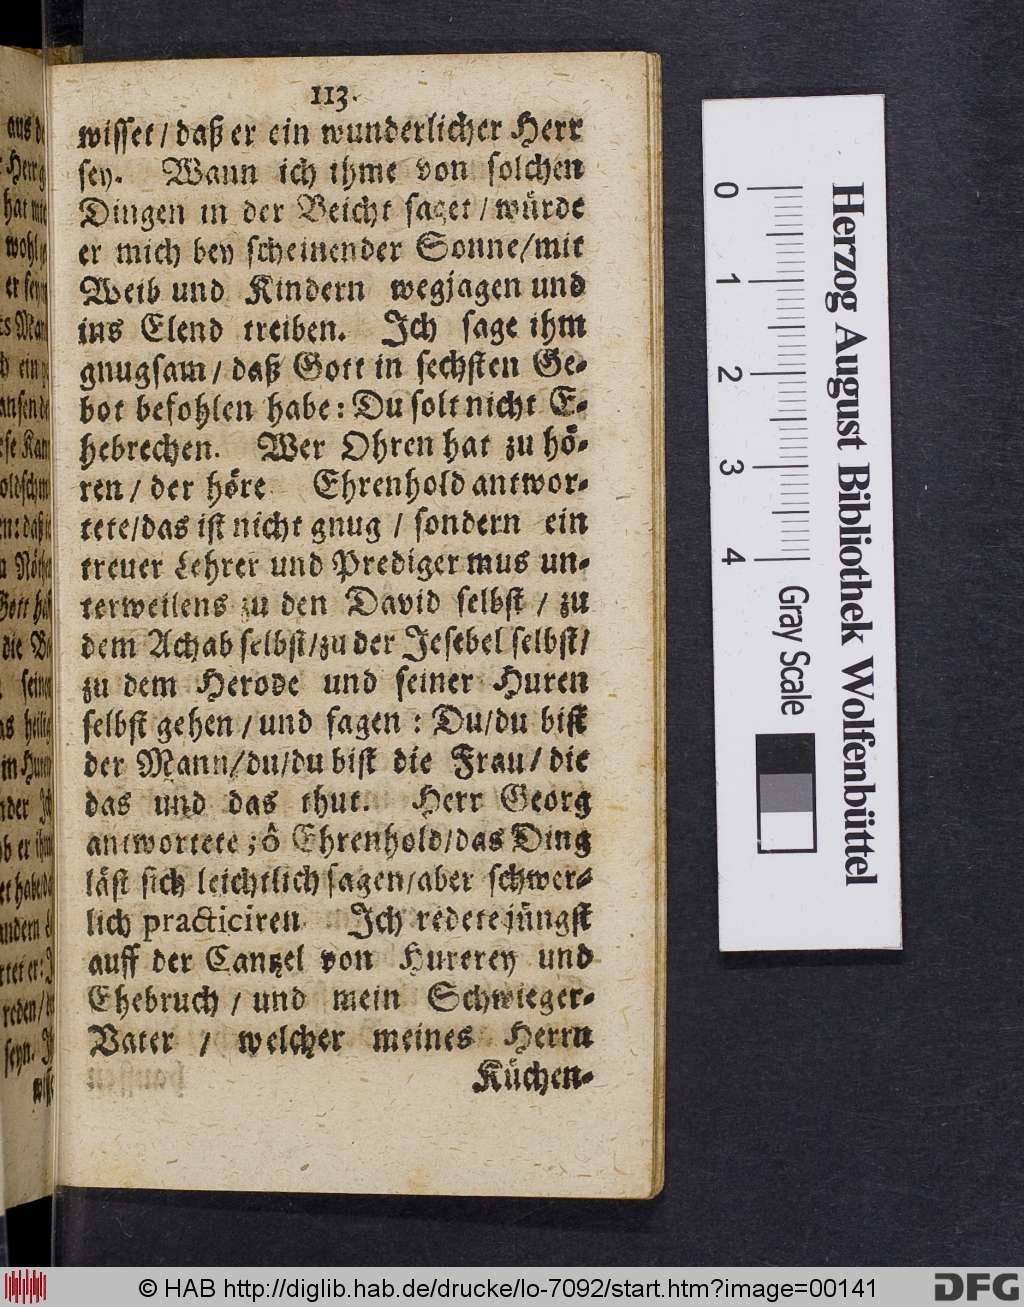 113.
wisset / daß er ein wunderlicher Herr
sey. Wann ich ihme von solchen
Dingen in der Beicht saget / würde
er mich bey scheinender Sonne/mit
Weib und Kindern wegjagen und
ins Elend treiben. Ich sage ihm
gnugsam / daß Gott in sechsten Ge-
bot befohlen habe: Du solt nicht E-
hebrechen. Wer Ohren hat zu hö-
ren / der höre Ehrenhold antwor-
tete/das ist nicht gnug / sondern ein
treuer Lehrer und Prediger mus un-
terweilens zu den David selbst / zu
dem Achab selbst/zu der Jesebel selbst/
zu dem Herode und seiner Huren
selbst gehen / und sagen : Du/du bist
der Mann/du/du bist die Frau/ die
das und das thut. Herr Georg
antwortete ; ô Ehrenhold/das Ding
läst sich leichtlich sagen/aber schwer-
lich practiciren Ich redete jüngst
auff der Cantzel von Hurerey und
Ehebruch / und mein Schwieger-
Vater / welcher meines Herrn
Küchen-
Herzog August Bibliothek Wolfenbüttel
0 1 2 3 4 Gray Scale
© HAB http://diglib.hab.de/drucke/lo-7092/start.htm?image=00141
DFG